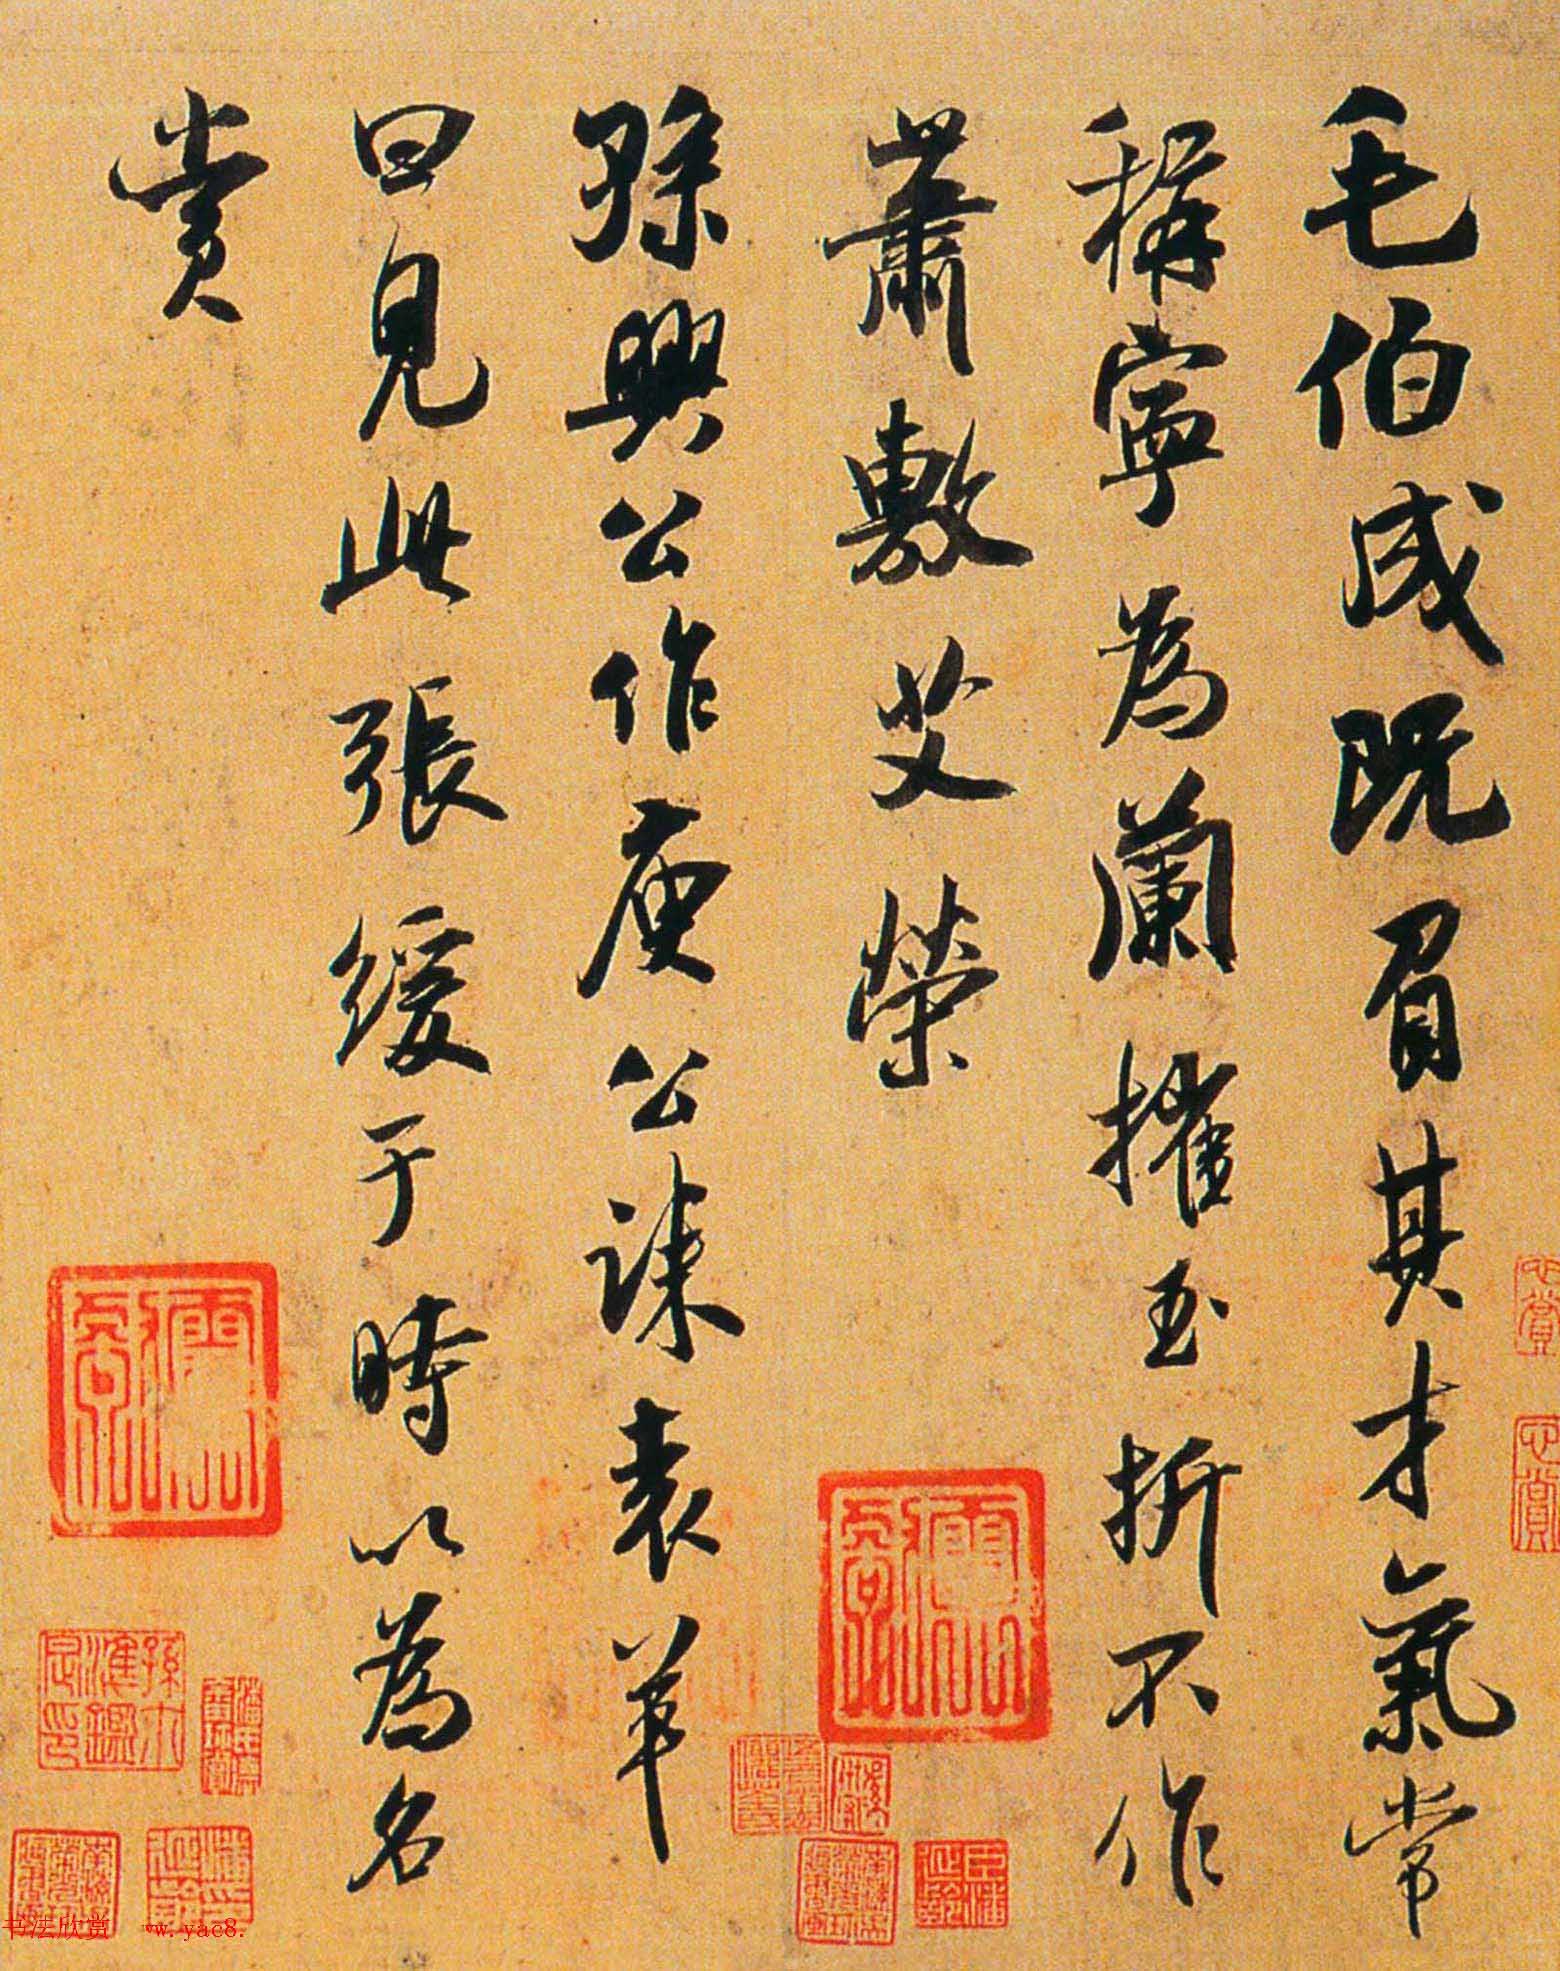 毛伯成既負其才氣常
稱寧為蘭摧玉折不作
蕭敷艾榮
孫興公作庾公誄袁羊
曰見此張緩于時以為名
賞
心賞
心賞
书法欣赏 ww.yac8.